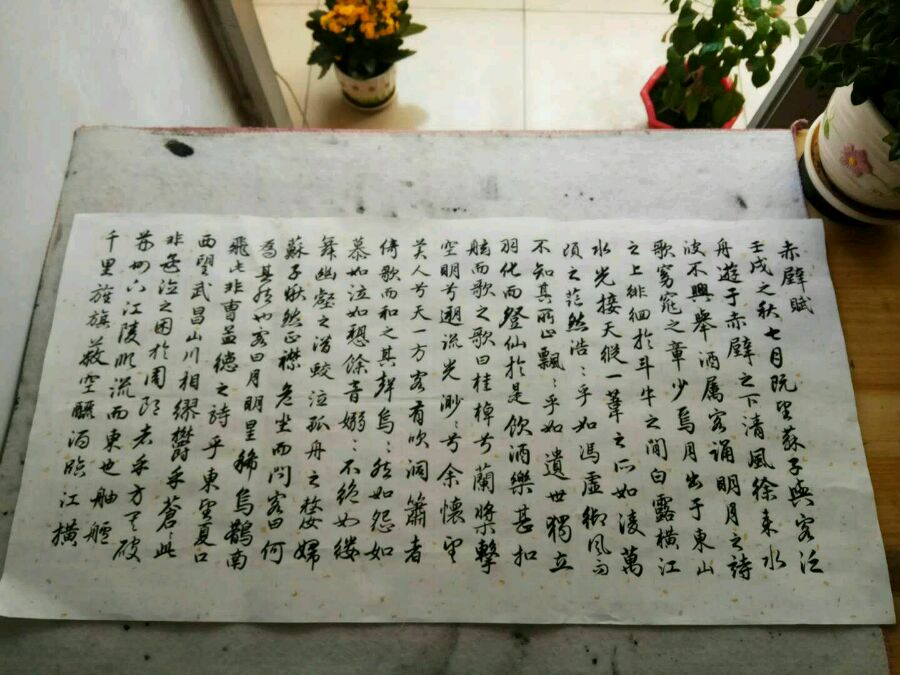 赤壁賦
壬戌之秋七月既望蘇子與客泛
舟遊于赤壁之下清風徐來水
波不興舉酒属客誦明月之詩
歌窈窕之章少焉月出于東山
之上徘徊於斗牛之間白露橫江
水光接天縱一葦之所如凌萬
頃之茫然浩:乎如馮虛御風而
不知其所止飄:乎如遺世獨立
羽化而登仙於是飲酒樂甚扣
舷而歌之歌曰桂棹兮蘭槳擊
空明兮遡流光渺:兮余懷望
美人兮天一方客有吹洞簫者
倚歌而和之其聲烏:然如怨如
慕如泣如愬餘音嫋:不絕如縷
舞幽壑之潛蛟泣孤舟之嫠婦
蘇子愀然正襟危坐而問客曰何
為其然也客曰月明星稀烏鵲南
飛此非曹孟德之詩乎東望夏口
西望武昌山川相繆鬱乎蒼:此
非孟德之困於周郎者乎方其破
荆州下江陵順流而東也舳艫
千里旌旗蔽空釃酒臨江橫